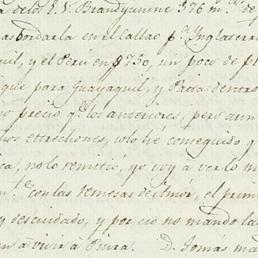 a de los E. V. Brandywine 376 m.s de
as bordarla en el Callao p.a Ynglaterra
uil, y el Perú en $ 750, un poco de pl
que para Guayaquil, y Paita dentro
o precio q.e los anteriores, pero aun
los estrechones, solo hé conseguido q
ica, no lo remitió, yo voy a ver lo m
con las remesas de Amor, el prim
y descuidado, y por eso no mando la
en á vivir a Piura. D. Tomas ma